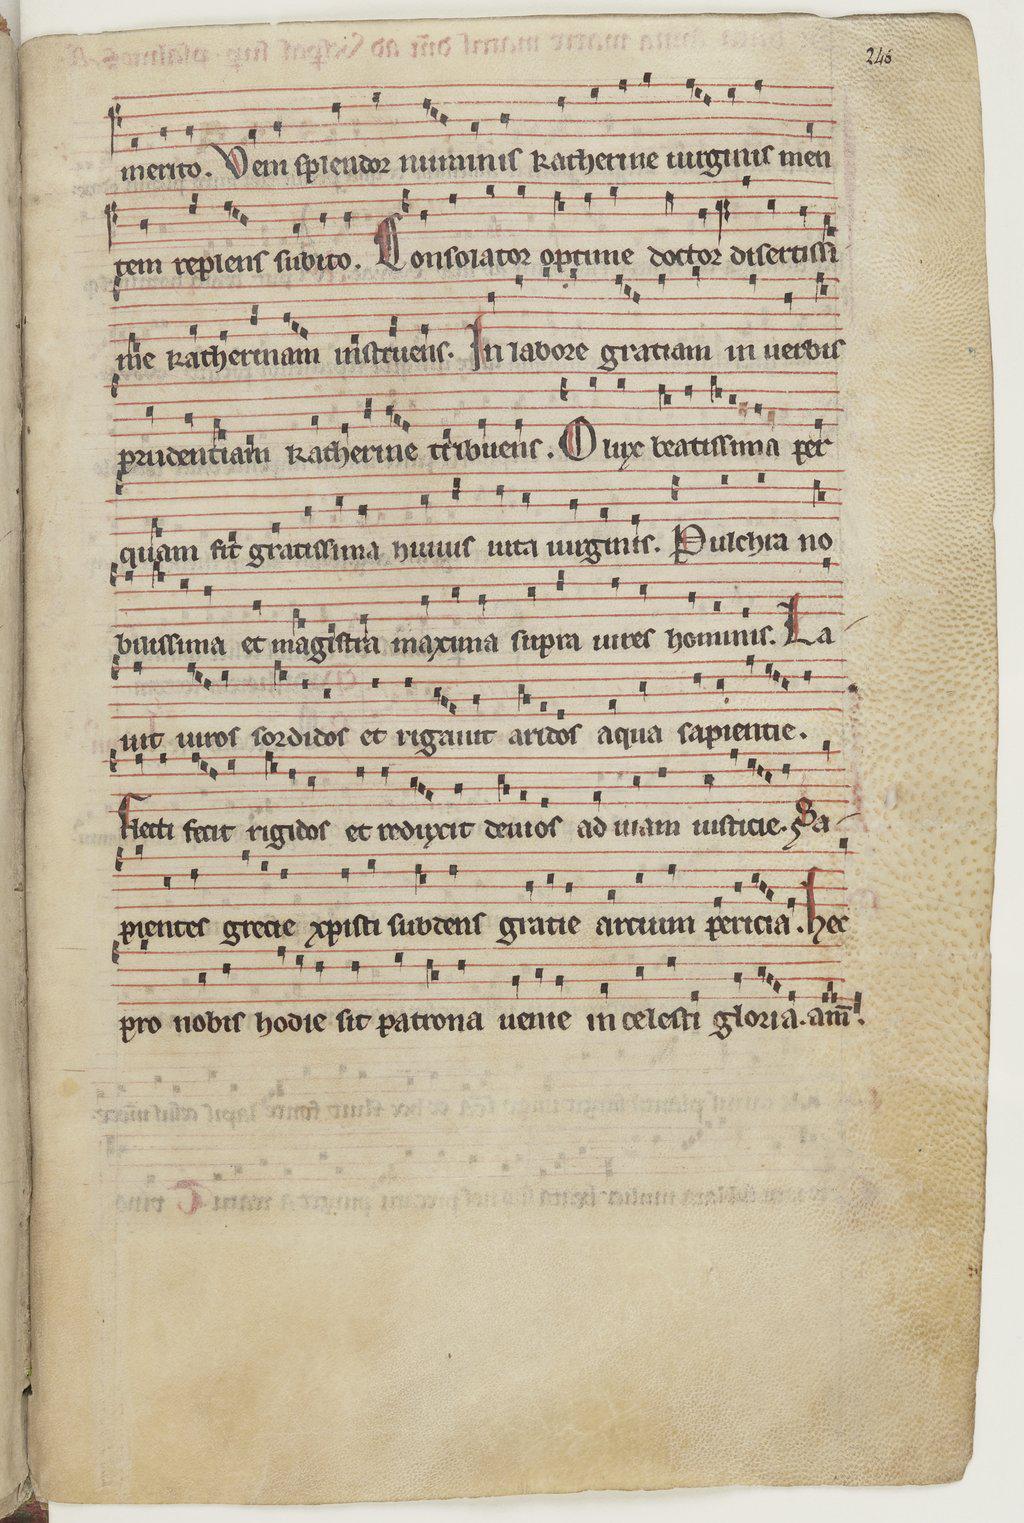 248
merito. Veni splendor numinis katherine uirginis men
tem replens subito. Consolator optime doctor disertissi
me katherinam instruens. In labore gratiam in uerbis
prudentiam katherine tribuens. O lux beatissima per
quam fit gratissima huius uita uirginis. Pulchra no
bilissima et magistra maxima supra uires hominis. La
uit uiros sordidos et rigauit aridos aqua sapientie.
Flecti fecit rigidos et reduxit deuios ad uiam iusticie. Sa
pientes grecie xpisti subdens gratie artium pericia. Hec
pro nobis hodie sit patrona uenie in celesti gloria. am̄.